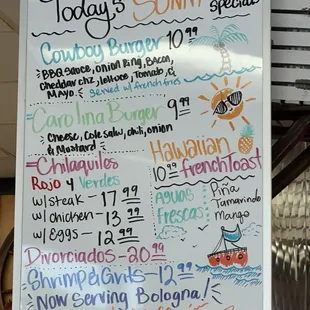 Today's SUNNY specials
Cowboy Burger 10 99
BBQ sauce, onion ring, Bacon,
Cheddar chz, lettuce, Tomato, &
MAYO. served w/ french fries
Carolina Burger 9 99
Cheese, Cole Slaw, chili, onion
& Mustard
Chilaquiles
Rojo y Verdes
w/ steak - 17 99
w/ chicken - 13 99
w/ Eggs - 12 99
Hawaiian
10 99 french Toast
Aguas
frescas
Piña
Tamarindo
Mango
Divorciados - 20 99
Shrimp & Grits - 12 99
Now Serving Bologna!